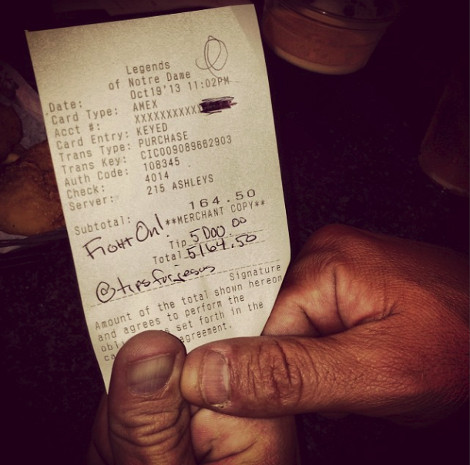 Legends
of Notre Dame
Date: Oct19'13 11:02PM
Card Type: AMEX
Acct #: XXXXXXXXXX
Card Entry: KEYED
Trans Type: PURCHASE
Trans Key: CIC009089662903
Auth Code: 108345
Check: 4014
Server: 215 ASHLEYS
Subtotal: 164.50
**MERCHANT COPY**
Fight On!
Tip 5000.00
Total 5164.50
@tipsforjesus
Signature
Amount of the total shown hereon
and agrees to perform the
set forth in the
agreement.